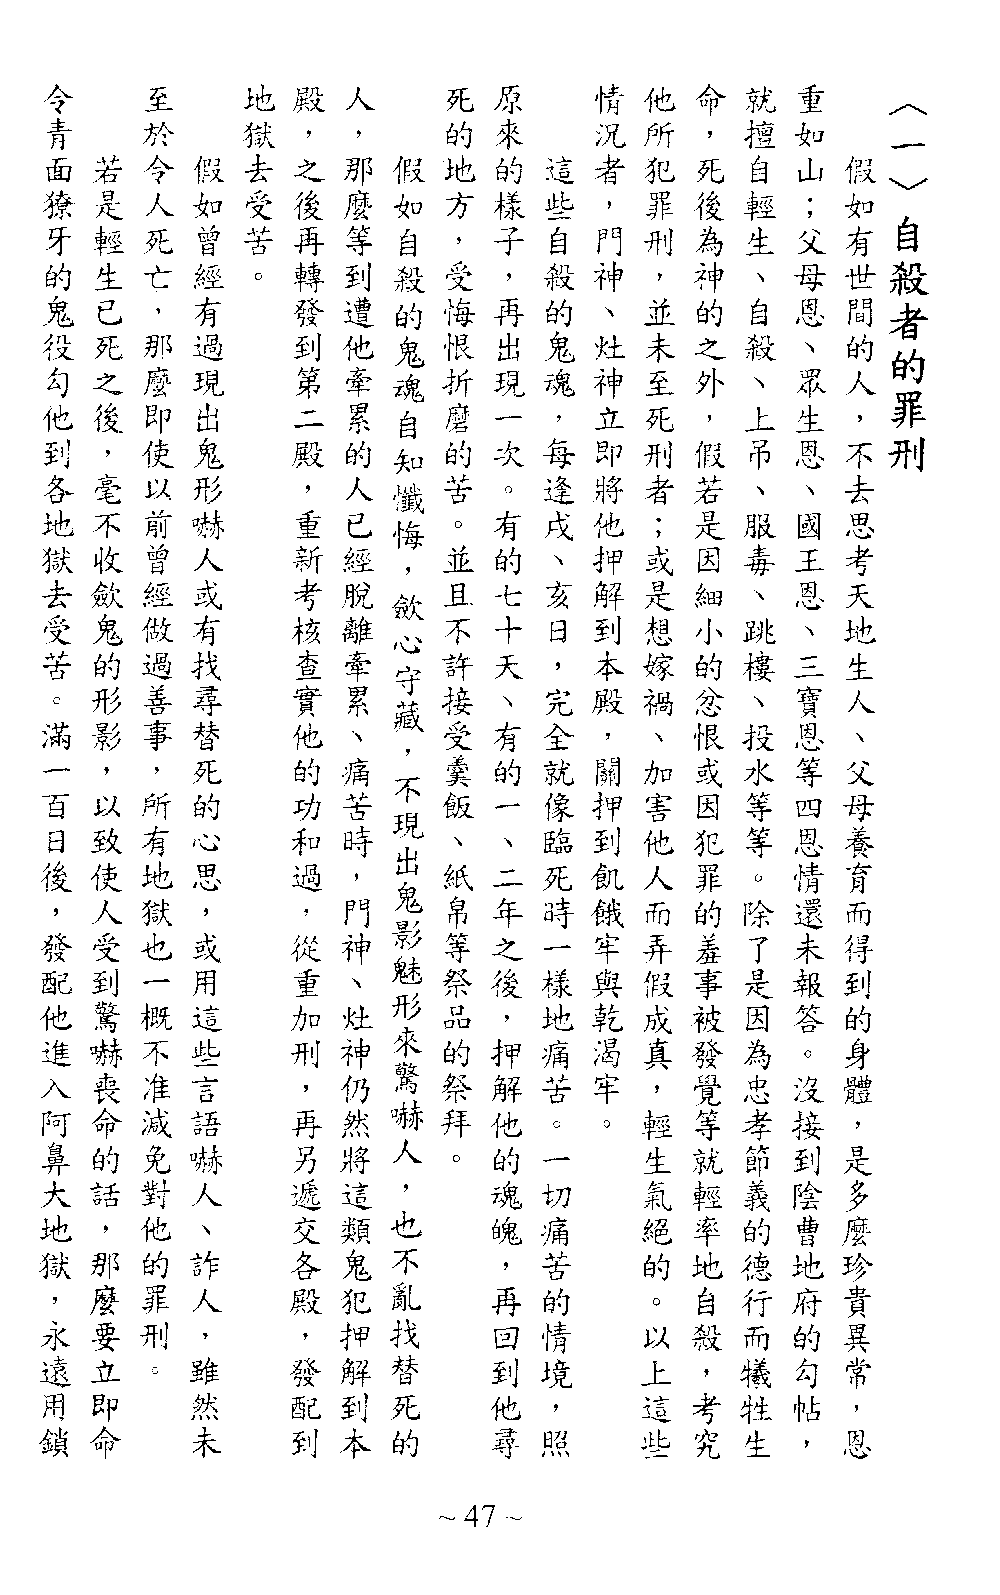 〈一〉自殺者的罪刑
假如有世間的人，不去思考天地生人、父母養育而得到的身體，是多麼珍貴異常，恩
重如山；父母恩、眾生恩、國王恩、三寶恩等四恩情還未報答。沒接到陰曹地府的勾帖，
就擅自輕生、自殺、上吊、服毒、跳樓、投水等等。除了是因為忠孝節義的德行而犧牲生
命，死後為神的之外，假若是因細小的忿恨或因犯罪的羞事被發覺等就輕率地自殺，考究
他所犯罪刑，並未至死刑者；或是想嫁禍、加害他人而弄假成真，輕生氣絕的。以上這些
情況者，門神、灶神立即將他押解到本殿，關押到飢餓牢與乾渴牢。
這些自殺的鬼魂，每逢戌、亥日，完全就像臨死時一樣地痛苦。一切痛苦的情境，照
原來的樣子，再出現一次。有的七十天、有的一、二年之後，押解他的魂魄，再回到他尋
死的地方，受悔恨折磨的苦。並且不許接受羹飯、紙帛等祭品的祭拜。
假如自殺的鬼魂自知懺悔，歛心守藏，不現出鬼影魅形來驚嚇人，也不亂找替死的
人，那麼等到遭他牽累的人已經脫離牽累、痛苦時，門神、灶神仍然將這類鬼犯押解到本
殿，之後再轉發到第二殿，重新考核查實他的功和過，從重加刑，再另遞交各殿，發配到
地獄去受苦。
假如曾經有過現出鬼形嚇人或有找尋替死的心思，或用這些言語嚇人、詐人，雖然未
至於令人死亡，那麼即使以前曾經做過善事，所有地獄也一概不准減免對他的罪刑。
若是輕生已死之後，毫不收歛鬼的形影，以致使人受到驚嚇喪命的話，那麼要立即命
令青面獠牙的鬼役勾他到各地獄去受苦。滿一百日後，發配他進入阿鼻大地獄，永遠用鎖
~47~